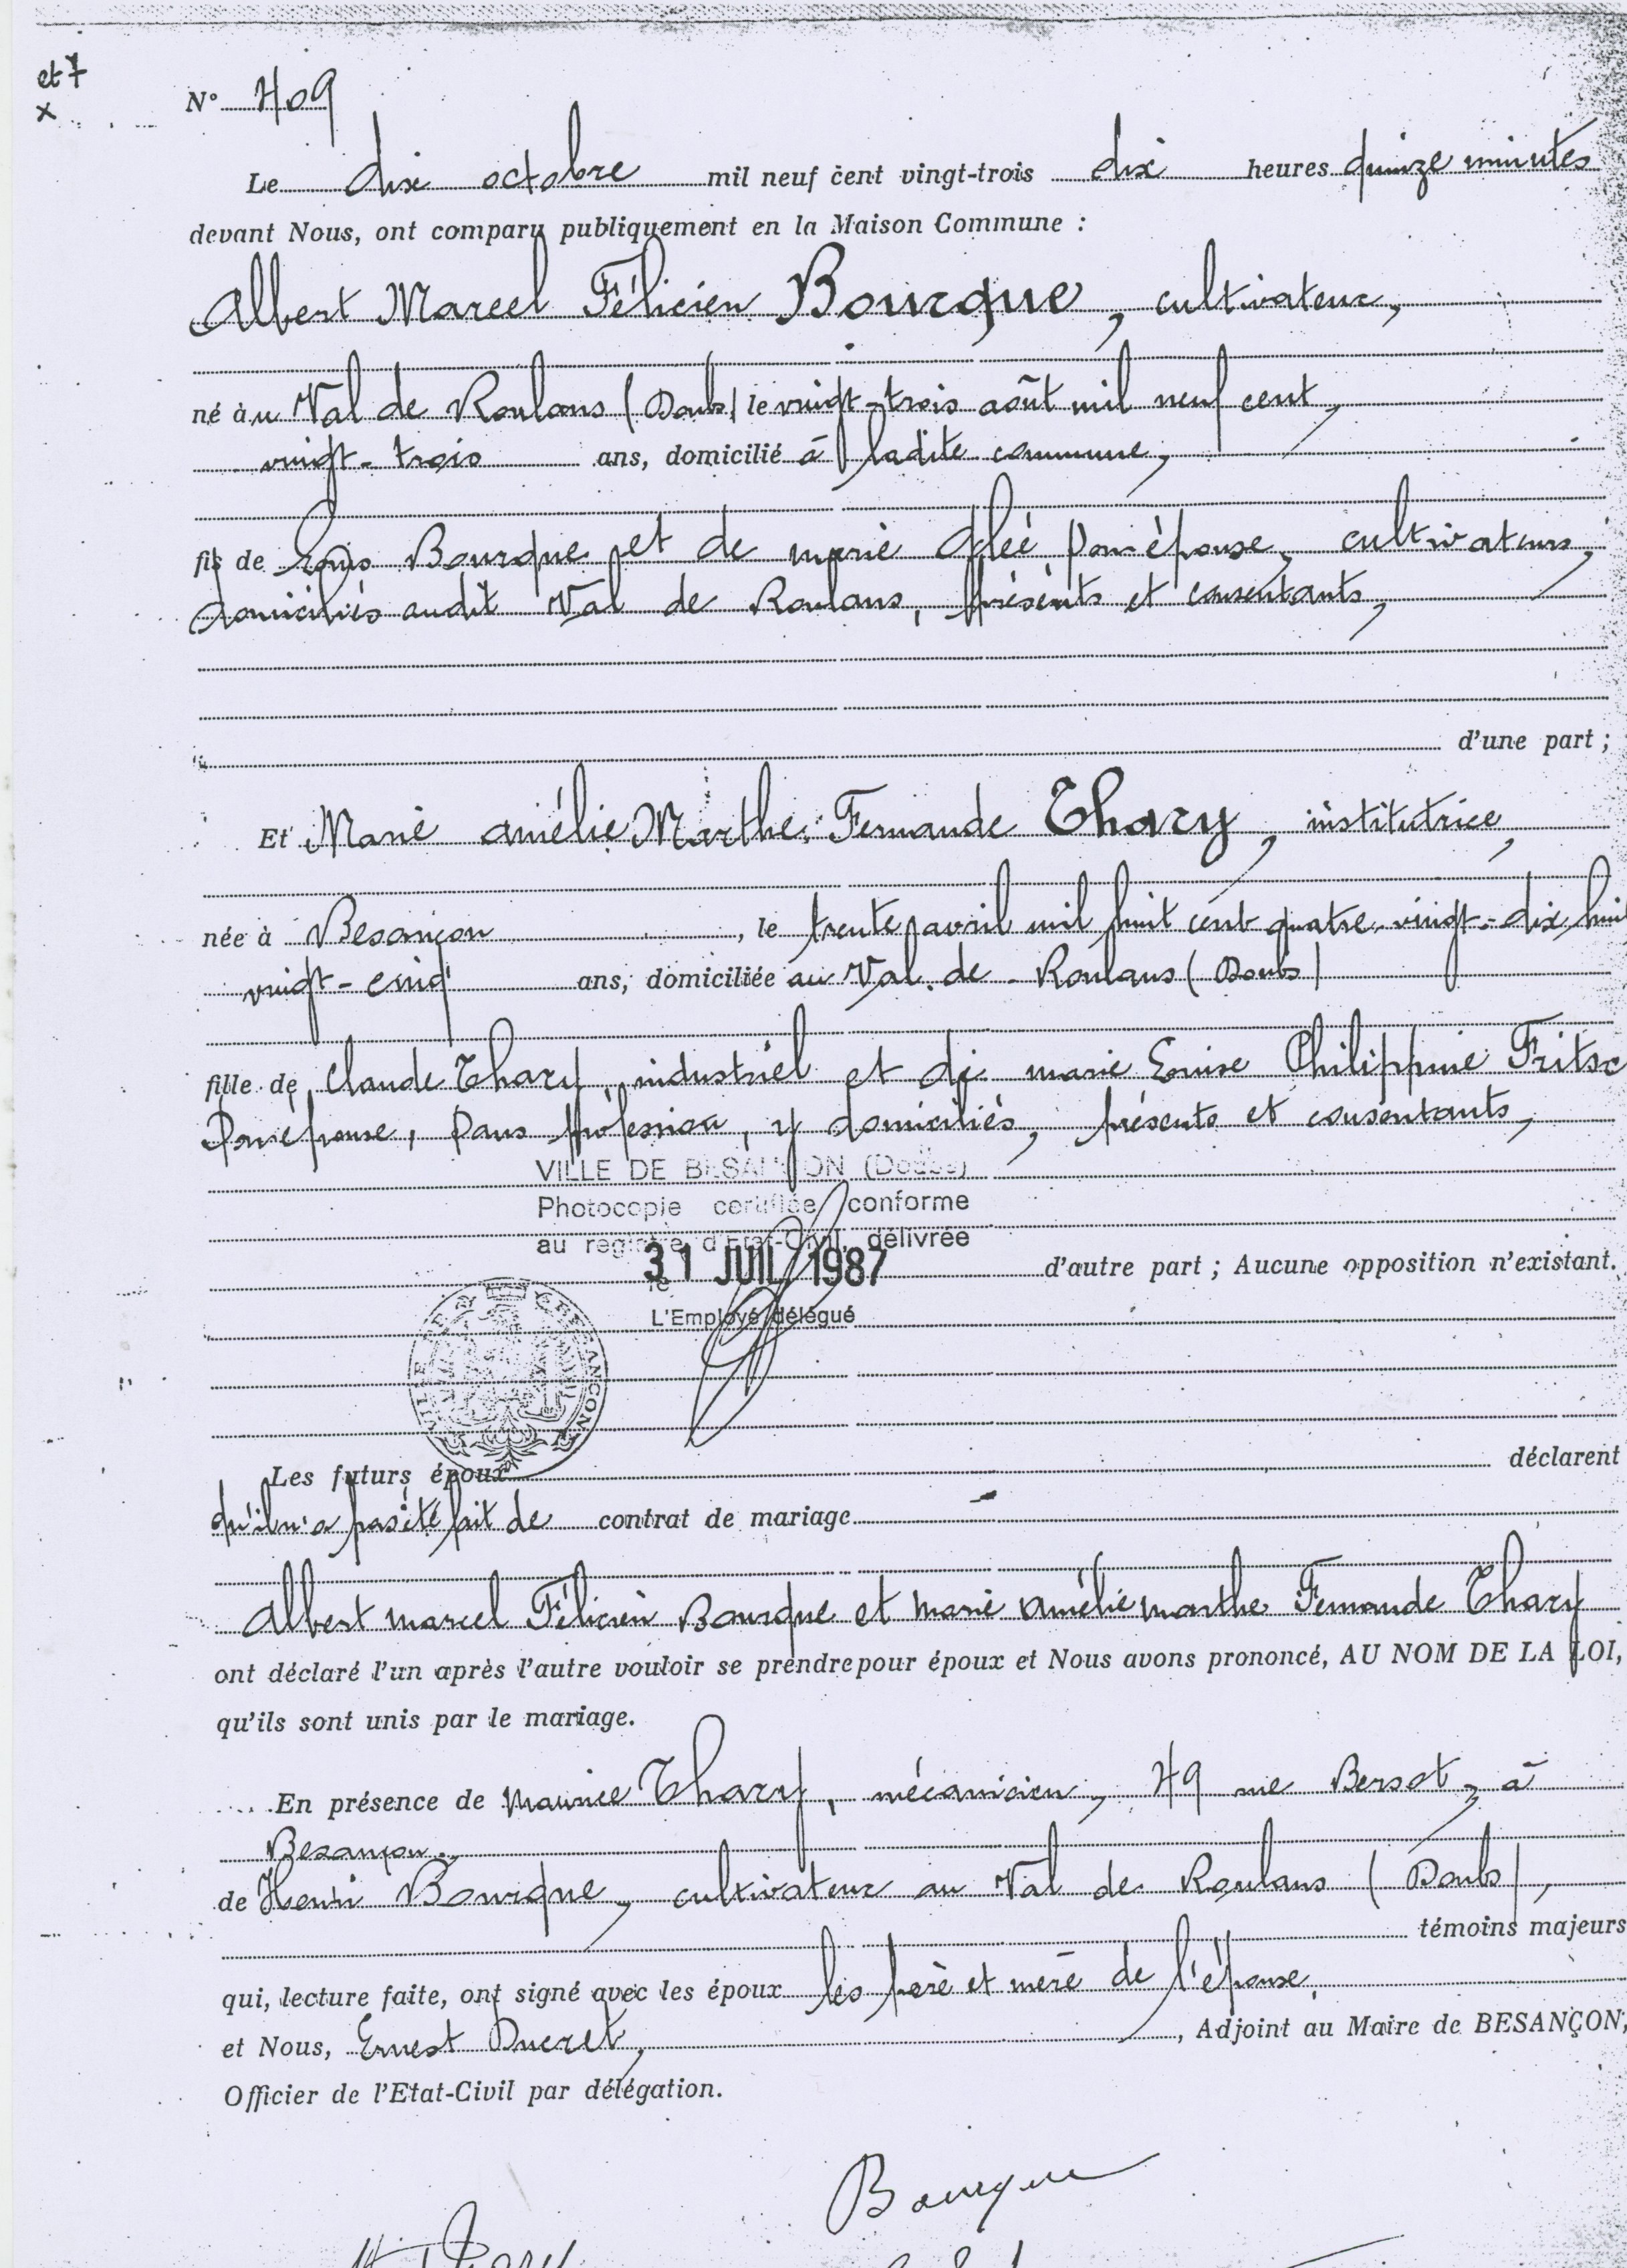 et 7
x
N° 409
Le dix octobre mil neuf cent vingt-trois dix heures quinze minutes
devant Nous, ont comparu publiquement en la Maison Commune :
Albert Marcel Félicien Bourque, cultivateur,
né à u Val de Roulans (Doubs) le vingt-trois août mil neuf cent,
vingt-trois ans, domicilié à ladite commune,
fils de Louis Bourque et de marie son épouse, cultivateurs,
domiciliés audit Val de Roulans, présents et consentants,
d'une part ;
Et Marie amélie Marthe Fernande Thary, institutrice,
née à Besançon, le trente avril mil huit cent quatre-vingt-dix huit
vingt-cinq ans, domiciliée au Val de Roulans (Doubs)
fille de Claude Thary, industriel et de marie Philippine Fritsc
Son épouse, sans profession, y domiciliés, présents et consentants,
VILLE DE BESANÇON (Doubs)
Photocopie certifiée conforme
au registre d'Etat-Civil, délivrée
le 31 JUIL 1987 d'autre part ; Aucune opposition n'existant.
L'Employé délégué
VILLE DE BESANÇON
Les futurs époux déclarent
qu'il n'a pas été fait de contrat de mariage
Albert marcel Félicien Bourque et marie amélie marthe Fernande Thary
ont déclaré l'un après l'autre vouloir se prendre pour époux et Nous avons prononcé, AU NOM DE LA LOI,
qu'ils sont unis par le mariage.
En présence de Maurice Thary, mécanicien, 49 rue Bersot, à
Besançon.
de Henri Bourque, cultivateur au Val de Roulans (Doubs),
témoins majeurs
qui, lecture faite, ont signé avec les époux les père et mère de l'épouse,
et Nous, Ernest Ducret, , Adjoint au Maire de BESANÇON,
Officier de l'Etat-Civil par délégation.
Bourque
Thary